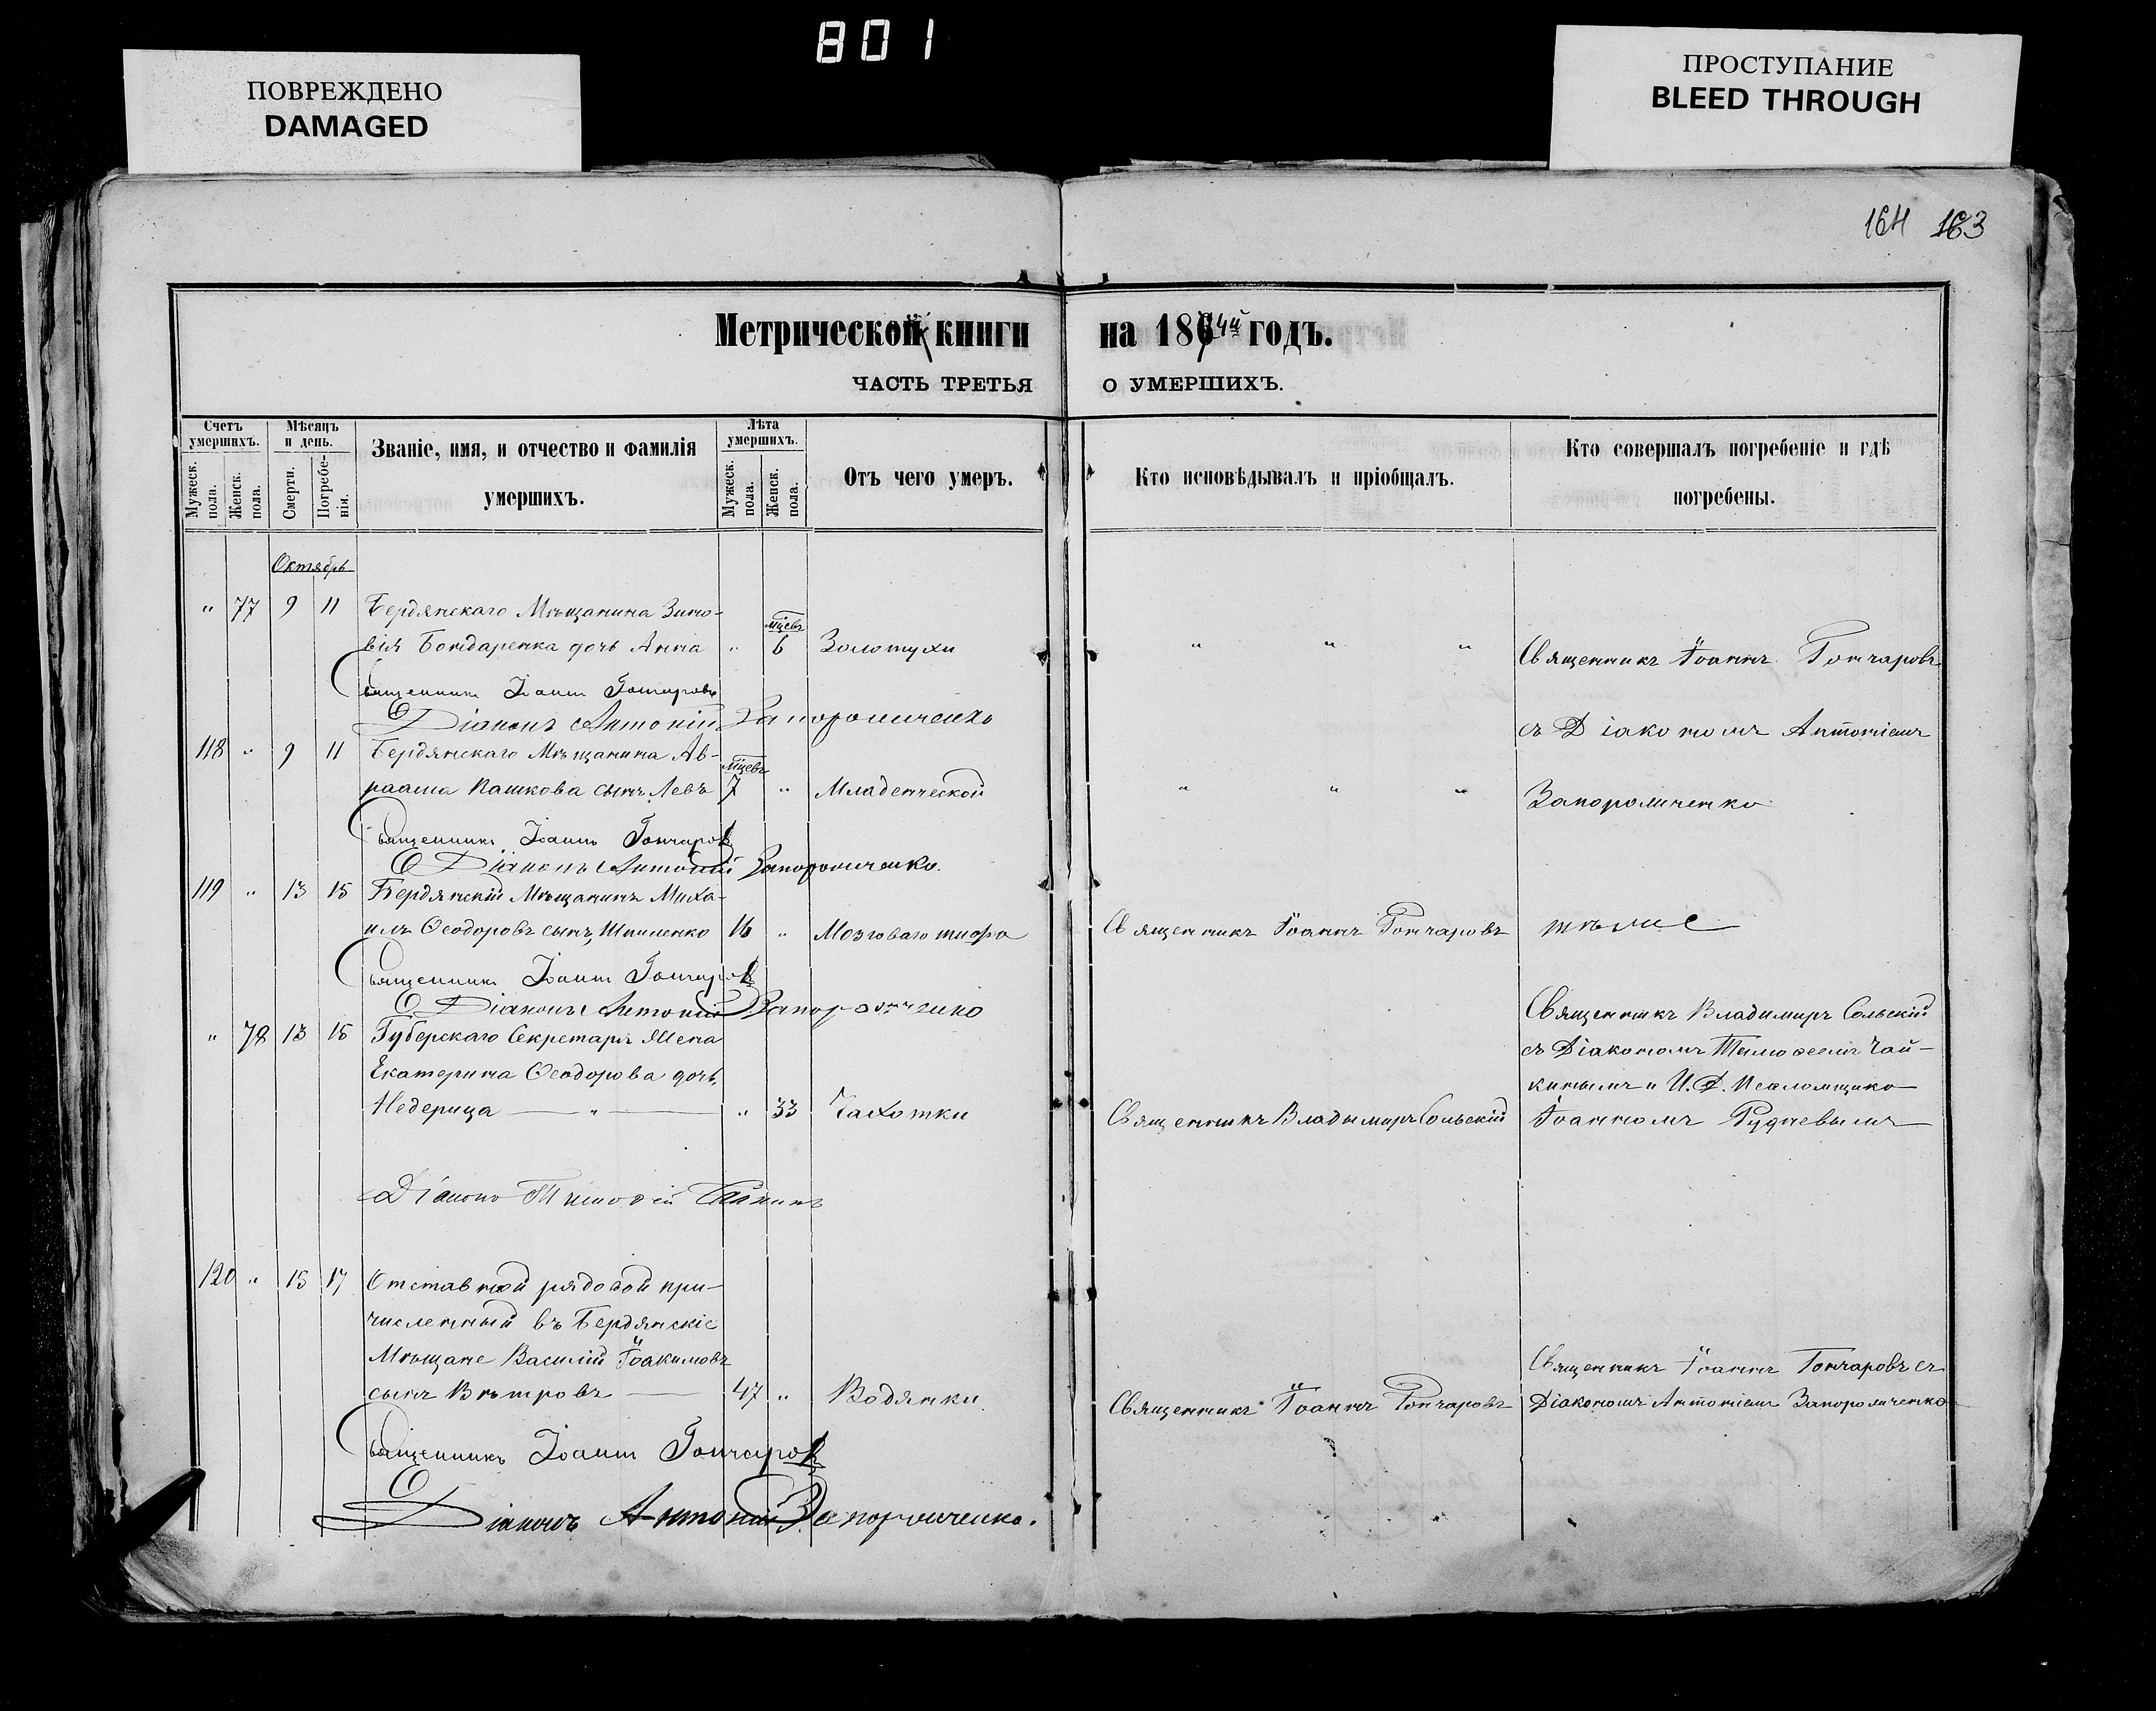 801
ПОВРЕЖДЕНО
DAMAGED
ПРОСТУПАНИЕ
BLEED THROUGH
164 163
Метрической книги на 1874й годъ.
ЧАСТЬ ТРЕТЬЯ О УМЕРШИХЪ.
Счетъ умершихъ.
Мужеск. пола.
Женск. пола.
Мѣсяцъ и день.
Смерти.
Погребенія.
Званіе, имя, и отчество и фамилія умершихъ.
Лѣта умершихъ.
Мужеск. пола.
Женск. пола.
Отъ чего умеръ.
Кто исповѣдывалъ и пріобщалъ.
Кто совершалъ погребеніе и гдѣ погребены.
Октябрь
" 77 9 11 Бердянскаго Мѣщанина Зино-
мцевъ
вія Бондаренка дочь Анна " 6 Золотухи " " " Священникъ Іоаннъ Гончаровъ
Священникъ Іоаннъ Гончаровъ
Діаконъ Антоній Запорожченко съ Діакономъ Антоніемъ
118 " 9 11 Бердянскаго Мѣщанина Ав-
мцевъ
раама Пашкова сынъ Левъ 7 " Младенческой " " " Запорожченко
Священникъ Іоаннъ Гончаровъ
Діаконъ Антоній Запорожченко.
119 " 13 15 Бердянскій Мѣщанинъ Миха-
илъ Ѳеодоровъ сынъ, Шпиленко 16 " Мозговаго тифа Священникъ Іоаннъ Гончаровъ тѣже
Священникъ Іоаннъ Гончаровъ
Діаконъ Антоній Запорожченко Священникъ Владимиръ Сольскій
" 78 13 15 Губерскаго Секретаря Жена съ Діакономъ Тимоѳеемъ Чай-
Екатерина Ѳеодорова дочь, кинымъ и И. Д. Псаломщика
Недерица — " — " 33 Чахотки Священникъ Владимиръ Сольскій Іоанномъ Рудневымъ
Діаконъ Тимоѳей Чайкинъ
120 " 15 17 Отставной рядовой при-
численный въ Бердянскіе
Мѣщане Василій Іоакимовъ Священникъ Іоаннъ Гончаровъ съ
сынъ Вѣтровъ — 47 " Водянки Священникъ Іоаннъ Гончаровъ Діакономъ Антоніемъ Запорожченко
Священникъ Іоаннъ Гончаровъ
Діаконъ Антоній Запорожченко.